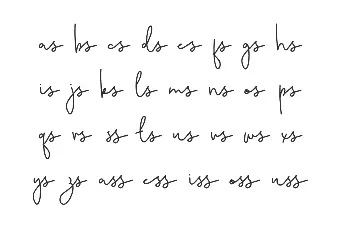 as bs cs ds es fs gs hs
is js ks ls ms ns os ps
qs rs ss ts us vs ws xs
ys zs ass ess iss oss uss